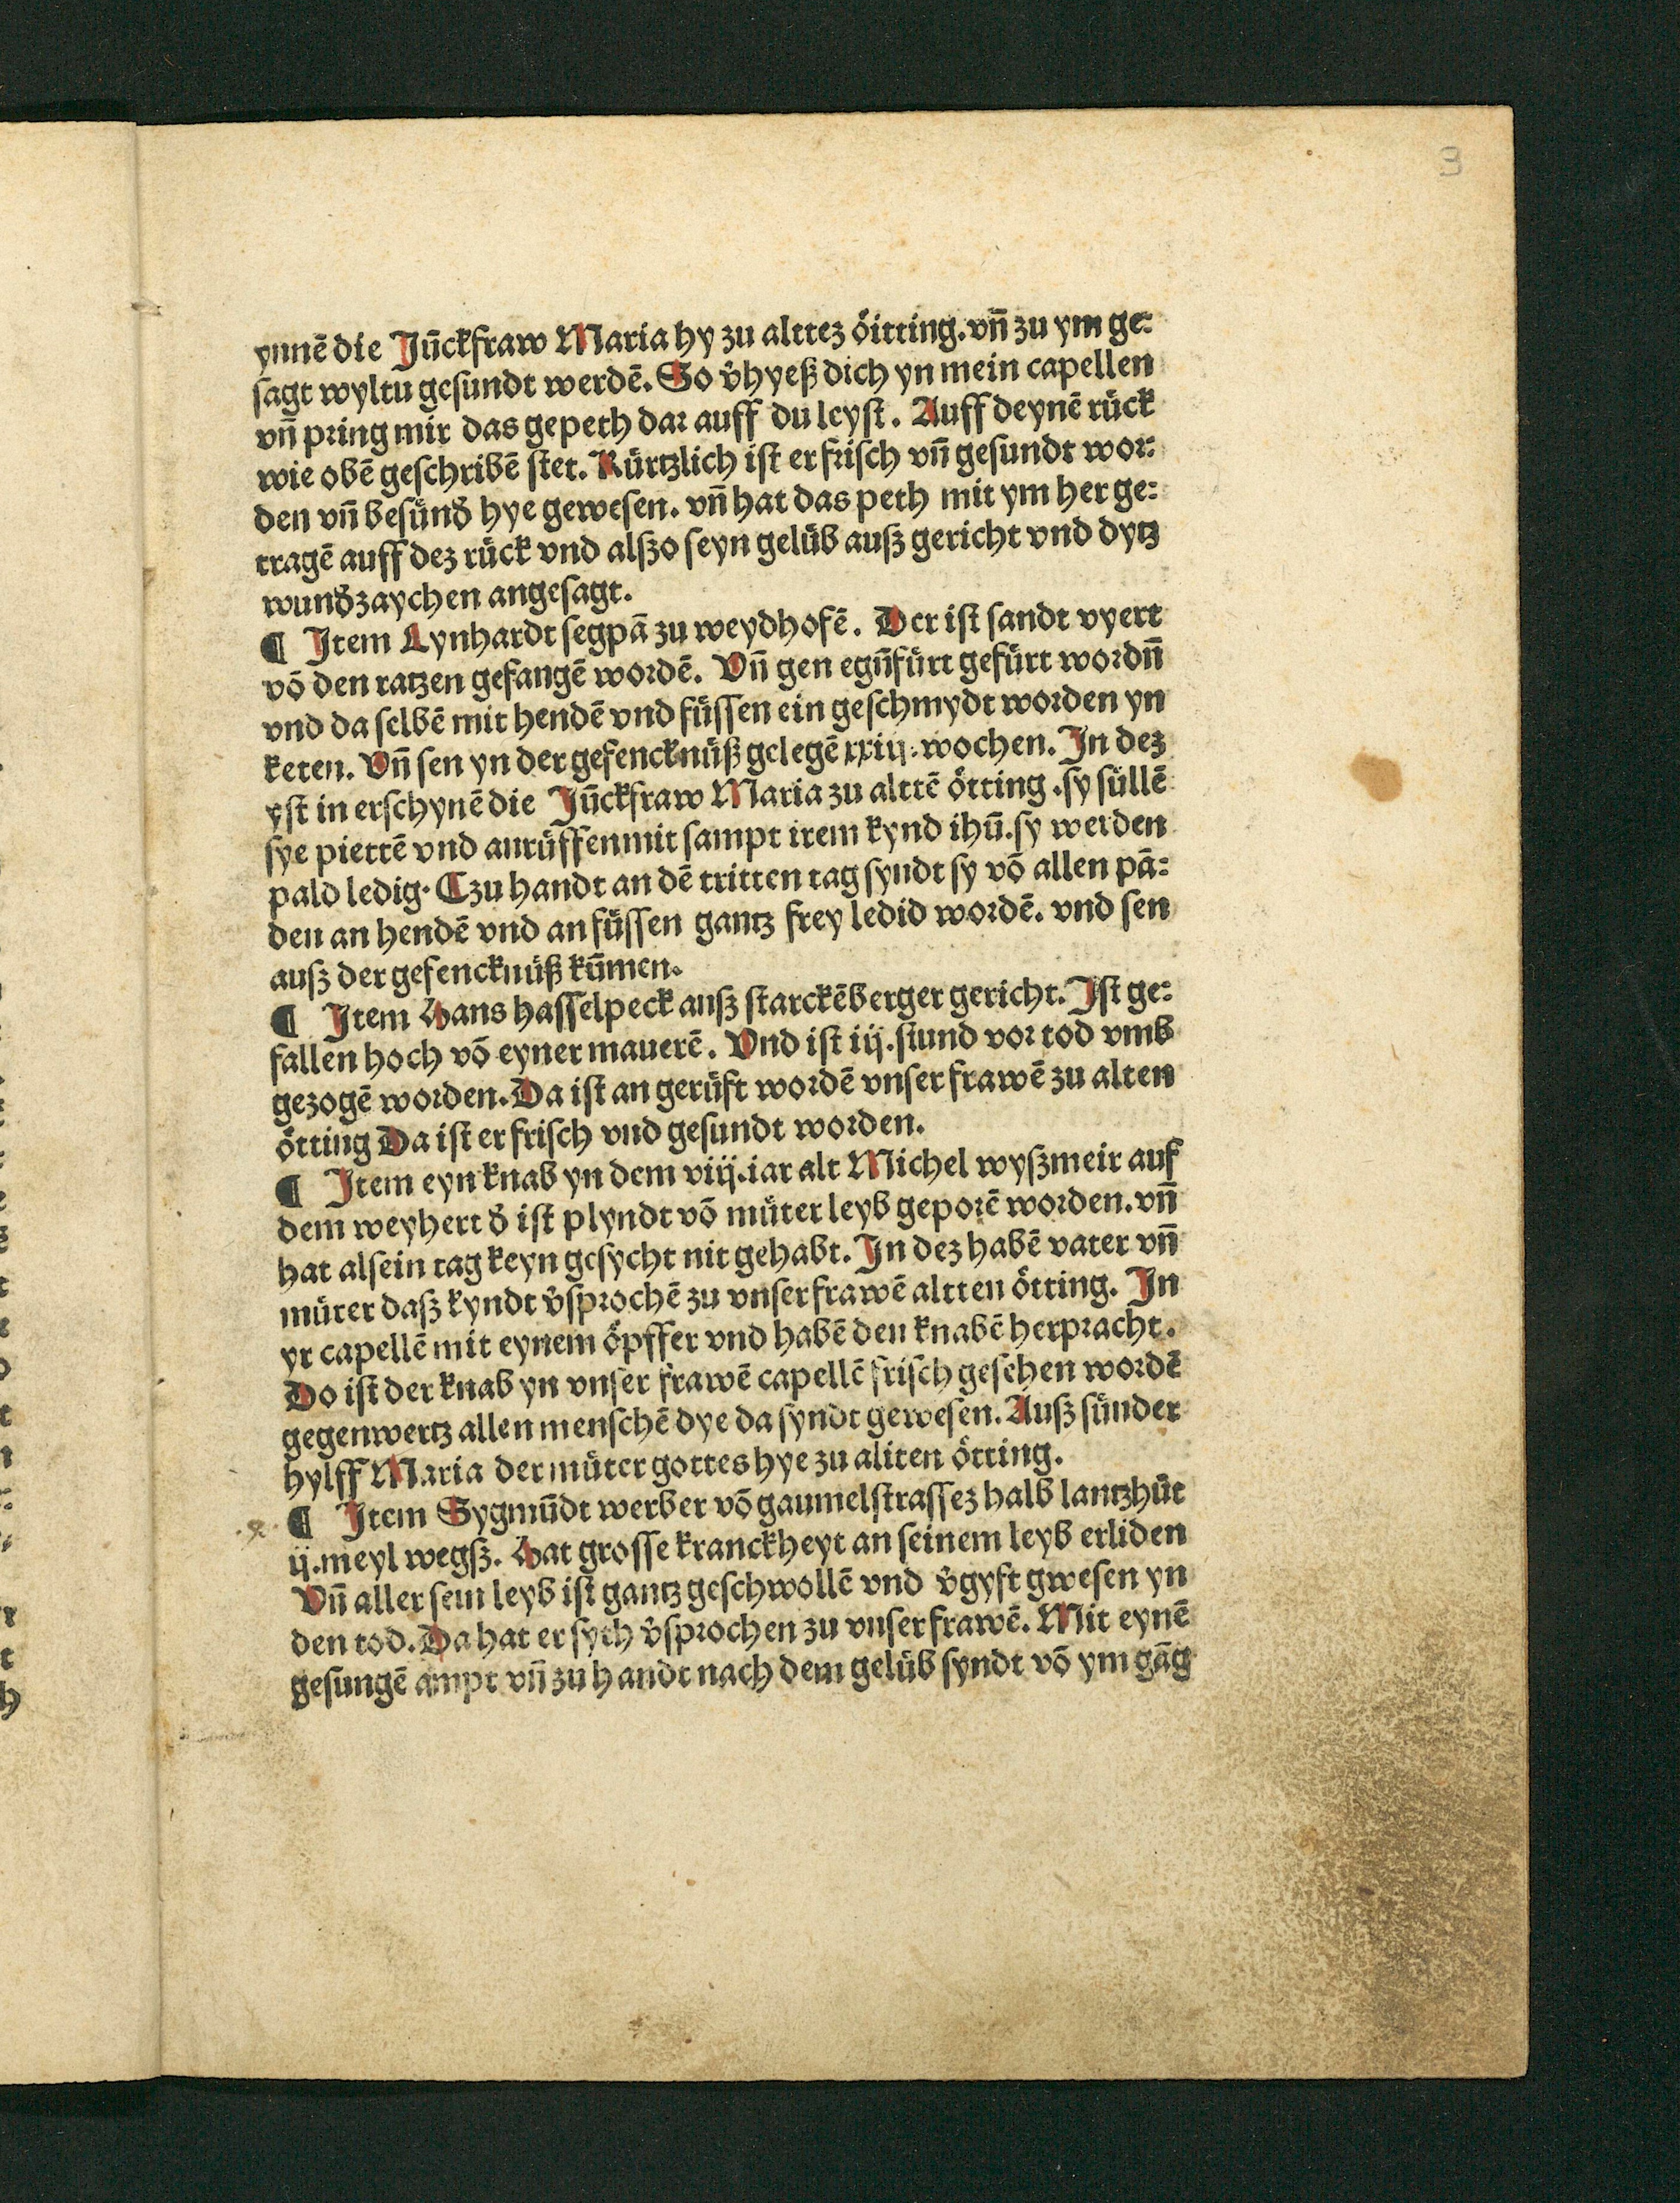 3
ynnē die Jūckfraw Maria hy zu alttez öitting. vn̄ zu ym ge:
sagt wyltu gesundt werdē. So v̄hyeß dich yn mein capellen
vn̄ pring mir das gepeth dar auff du leyst. Auff deynē rück
wie obē geschribē stet. Kürtzlich ist er frisch vn̄ gesundt wor:
den vn̄ besünd̄ hye gewesen. vn̄ hat das peth mit ym her ge:
tragē auff dez rück vnd alßo seyn gelüb auß gericht vnd dytz
wund̄zaychen angesagt.
¶ Item Lynhardt segpā zu weydhofē. Der ist sandt vyert
vō den ratzen gefangē wordē. Vn̄ gen egn̄fürt gefürt wordn̄
vnd da selbē mit hendē vnd füssen ein geschmydt worden yn
keten. Vn̄ sen yn der gefencknüß gelegē xxiij. wochen. In dez
yst in erschynē die Jūckfraw Maria zu alttē ötting. sy süllē
sye piettē vnd anrüffen mit sampt irem kynd ihū. sy werden
pald ledig. Czu handt an dē tritten tag syndt sy vō allen pā:
den an hendē vnd an füssen gantz frey ledid wordē. vnd sen
auß der gefencknüß kūmen.
¶ Item Hans hasselpeck auß starckēberger gericht. Ist ge:
fallen hoch vō eyner mauerē. Vnd ist iij. stund vor tod vmb
gezogē worden. Da ist an gerüft wordē vnser frawē zu alten
ötting Da ist er frisch vnd gesundt worden.
¶ Item eyn knab yn dem viij. iar alt Michel wyßmeir auf
dem weyhert d̄ ist plyndt vō müter leyb geporē worden. vn̄
hat alsein tag keyn gesycht nit gehabt. In dez habē vater vn̄
müter daß kyndt v̄sprochē zu vnser frawē altten ötting. In
yr capellē mit eynem öpffer vnd habē den knabē herpracht.
Do ist der knab yn vnser frawē capellē frisch gesehen wordē
gegenwertz allen menschē dye da syndt gewesen. Auß sünder
hylff Maria der müter gottes hye zu aliten ötting.
¶ Item Sygmūdt werber vō gaumelstrassez halb lantzhüt
ij. meyl wegß. Hat grosse kranckheyt an seinem leyb erliden
Vn̄ aller sein leyb ist gantz geschwollē vnd v̄gyft gwesen yn
den tod. Da hat er sych v̄sprochen zu vnser frawē. Mit eynē
gesungē ampt vn̄ zu handt nach dem gelüb syndt vō ym gāg